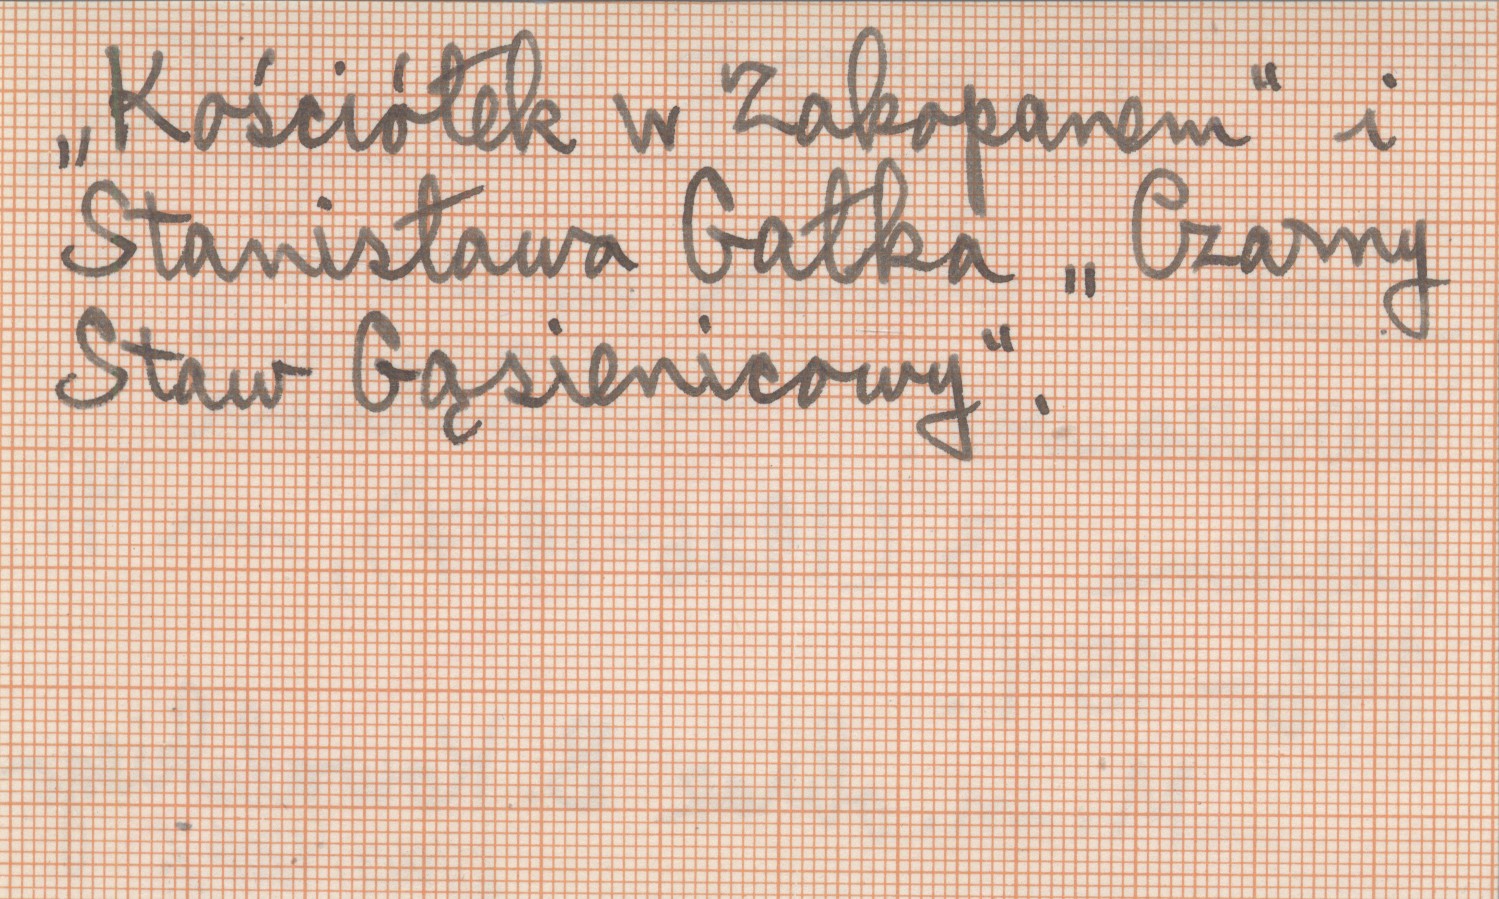 „Kościółek w Zakopanem“ i
Stanisława Gałka „Czarny
Staw Gąsienicowy“.